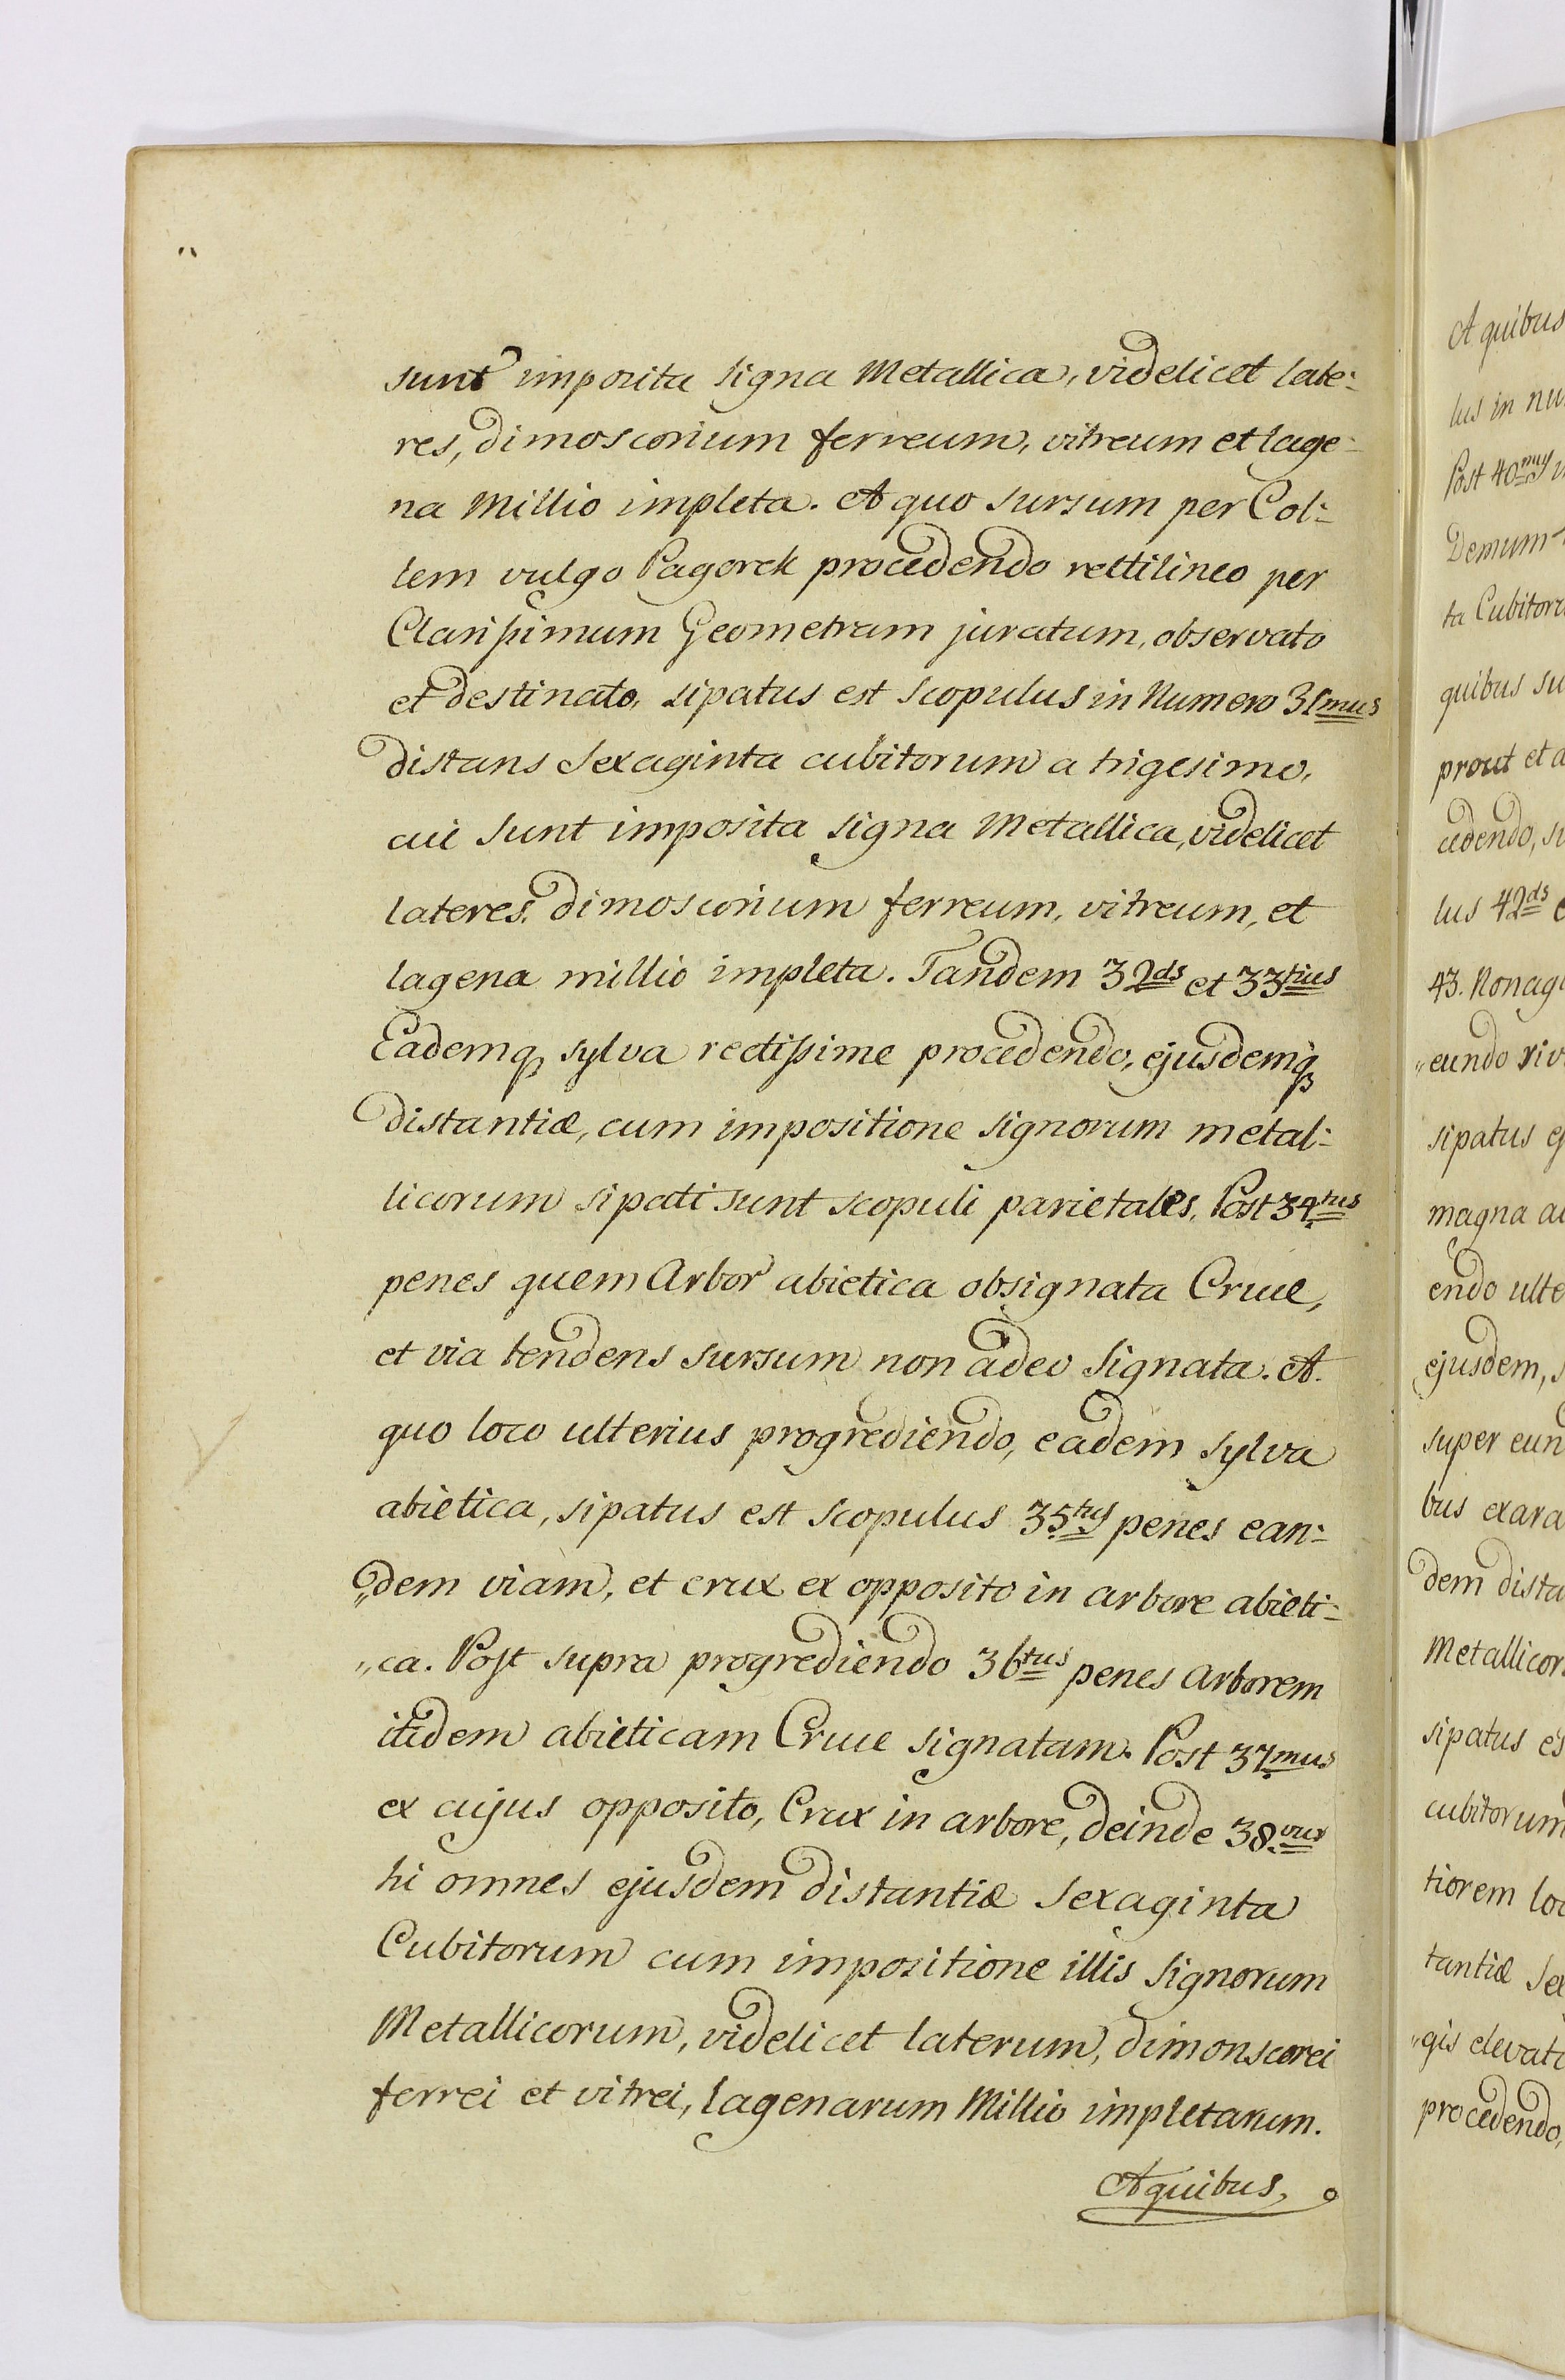 sunt imposita signa Metallica, videlicet late:
res, dimoscorium ferreum, vitreum et lage:
na Millio impleta. A quo sursum per Col:
lem vulgo Pagorek procedendo rettilineo per
Clarissimum Geometram juratum, observato
et destinato, sipatus est Scopulus in Numero 31mus
distans Sexaginta cubitorum a trigesimo,
cui sunt imposita signa Metallica, videlicet
lateres, dimoscorium ferreum, vitreum, et
lagena millio impleta. Tandem 32ds et 33tius
Eademq sylva rectissime procedendo, ejusdemq
distantiæ, cum impositione signorum metal:
licorum sipati sunt scopuli parietales, Post 34tus
penes quem Arbor abietica obsignata Cruce,
et via tendens sursum non adeo signata. A
quo loco ulterius progrediendo, eadem sylva
abietica, sipatus est scopulus 35tus penes ean:
„dem viam, et crux ex opposito in arbore abieti:
„ca. Post supra progrediendo 36tus penes Arborem
itidem abieticam Cruce signatam. Post 37mus
ex cujus opposito, Crux in arbore, deinde 38vus
hi omnes ejusdem distantiæ Sexaginta
Cubitorum cum impositione illis signorum
Metallicorum, videlicet laterum, dimonscorei
ferrei et vitrei, lagenarum Millio impletarum.
A quibus,
A quibus
lus in
Post 40mus
Demum
ta
quibus
prout et
cedendo,
lus 42ds
43.
„eundo
sipatus
magna
endo
ejusdem,
super
bus
dem
sipatus
tiorem
tantiæ
„gis
procedendo,